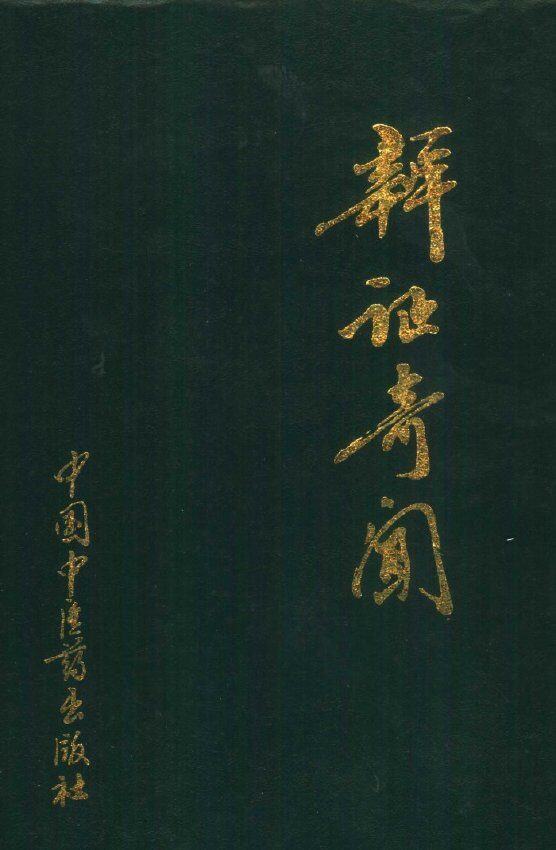 辨证奇闻
中国中医药出版社